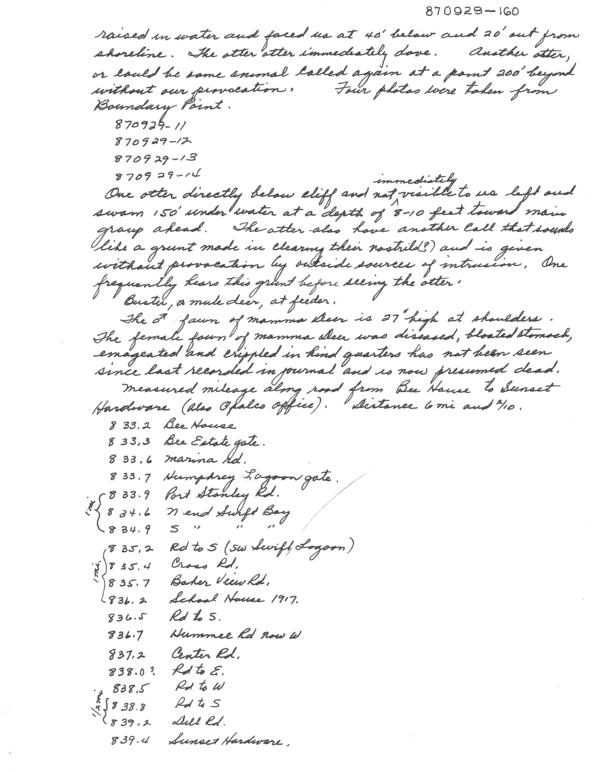 870929-160
raised in water and faced us at 40' below and 20' out from
shoreline. The otter otter immediately dove. Another otter,
or could be same animal called again at a point 200' beyond
without our provocation. Four photos were taken from
Boundary Point.
870929-11
870929-12
870929-13
870929-14
immediately
One otter directly below cliff and not ^ visible to us left and
swam 150' under water at a depth of 8-10 feet toward main
group ahead. The otter also have another call that sounds
like a grunt made in clearing their nostril(?) and is given
without provocation by outside sources of intrusion. One
frequently hears this grunt before seeing the otter.
Buster, a mule deer, at feeder.
The ♂ fawn of mamma Deer is 27" high at shoulders.
The female fawn of mamma Deer was diseased, bloated stomach,
emageated and crippled in hind quarters has not been seen
since last recorded in journal and is now presumed dead.
Measured mileage along road from Bee House to Sunset
Hardware (also Opalco office). Distance 6 mi and 2/10.
833.2 Bee House
833.3 Bee Estate gate.
833.6 marina Rd.
833.7 Humphrey Lagoon gate.
1 mi. { 833.9 Port Stanley Rd.
834.6 N end Swift Bay
834.9 S " " "
1 mi. { 835.2 Rd to S (SW Swift Lagoon)
835.4 Cross Rd.
835.7 Baker View Rd.
836.2 School House 1917.
836.5 Rd to S.
836.7 Hummel Rd now W
837.2 Center Rd.
838.0? Rd to E.
838.5 Rd to W
1/2 mi { 838.8 Rd to S
839.2 Dill Rd.
839.4 Sunset Hardware.